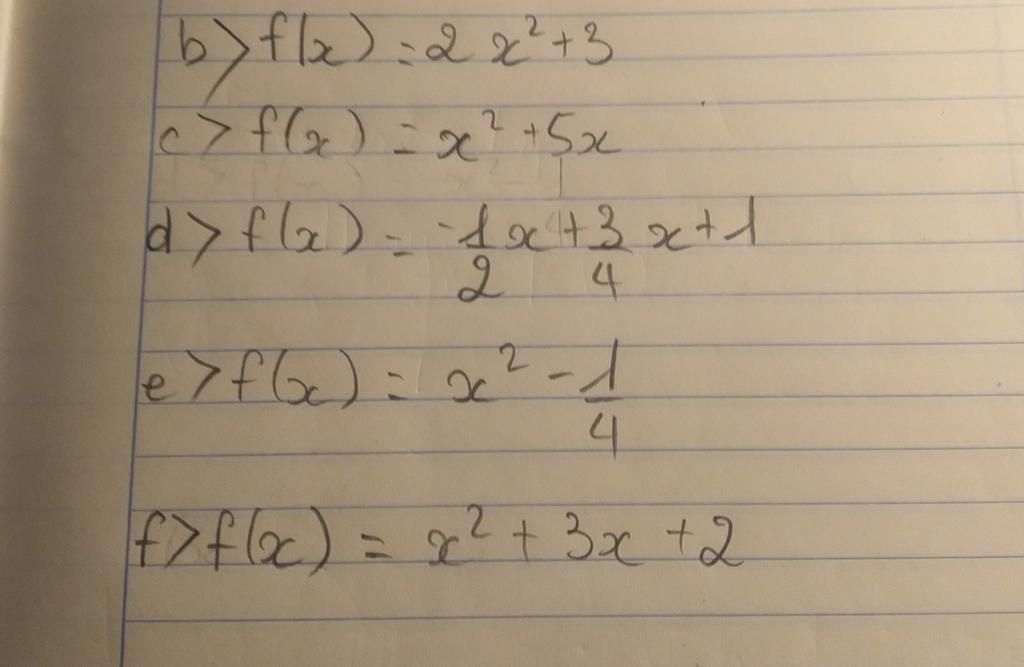 b> f(x) = 2x² + 3
c> f(x) = x² + 5x
d> f(x) = -1/2 x + 3/4 x + 1
e> f(x) = x² - 1/4
f> f(x) = x² + 3x + 2